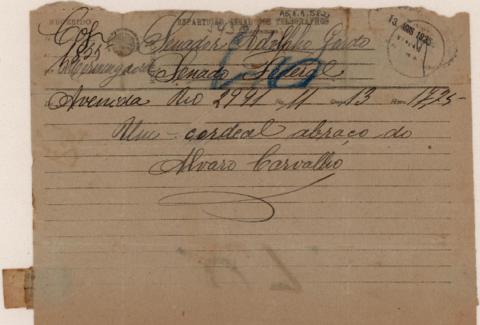 RECEBIDO
REPARTIÇÃO GERAL DOS TELEGRAPHOS
Senador Adolpho Gordo
Senado Federal
Avenida Rio 2991 11 13 1725
Um cordeal abraço do
Alvaro Carvalho